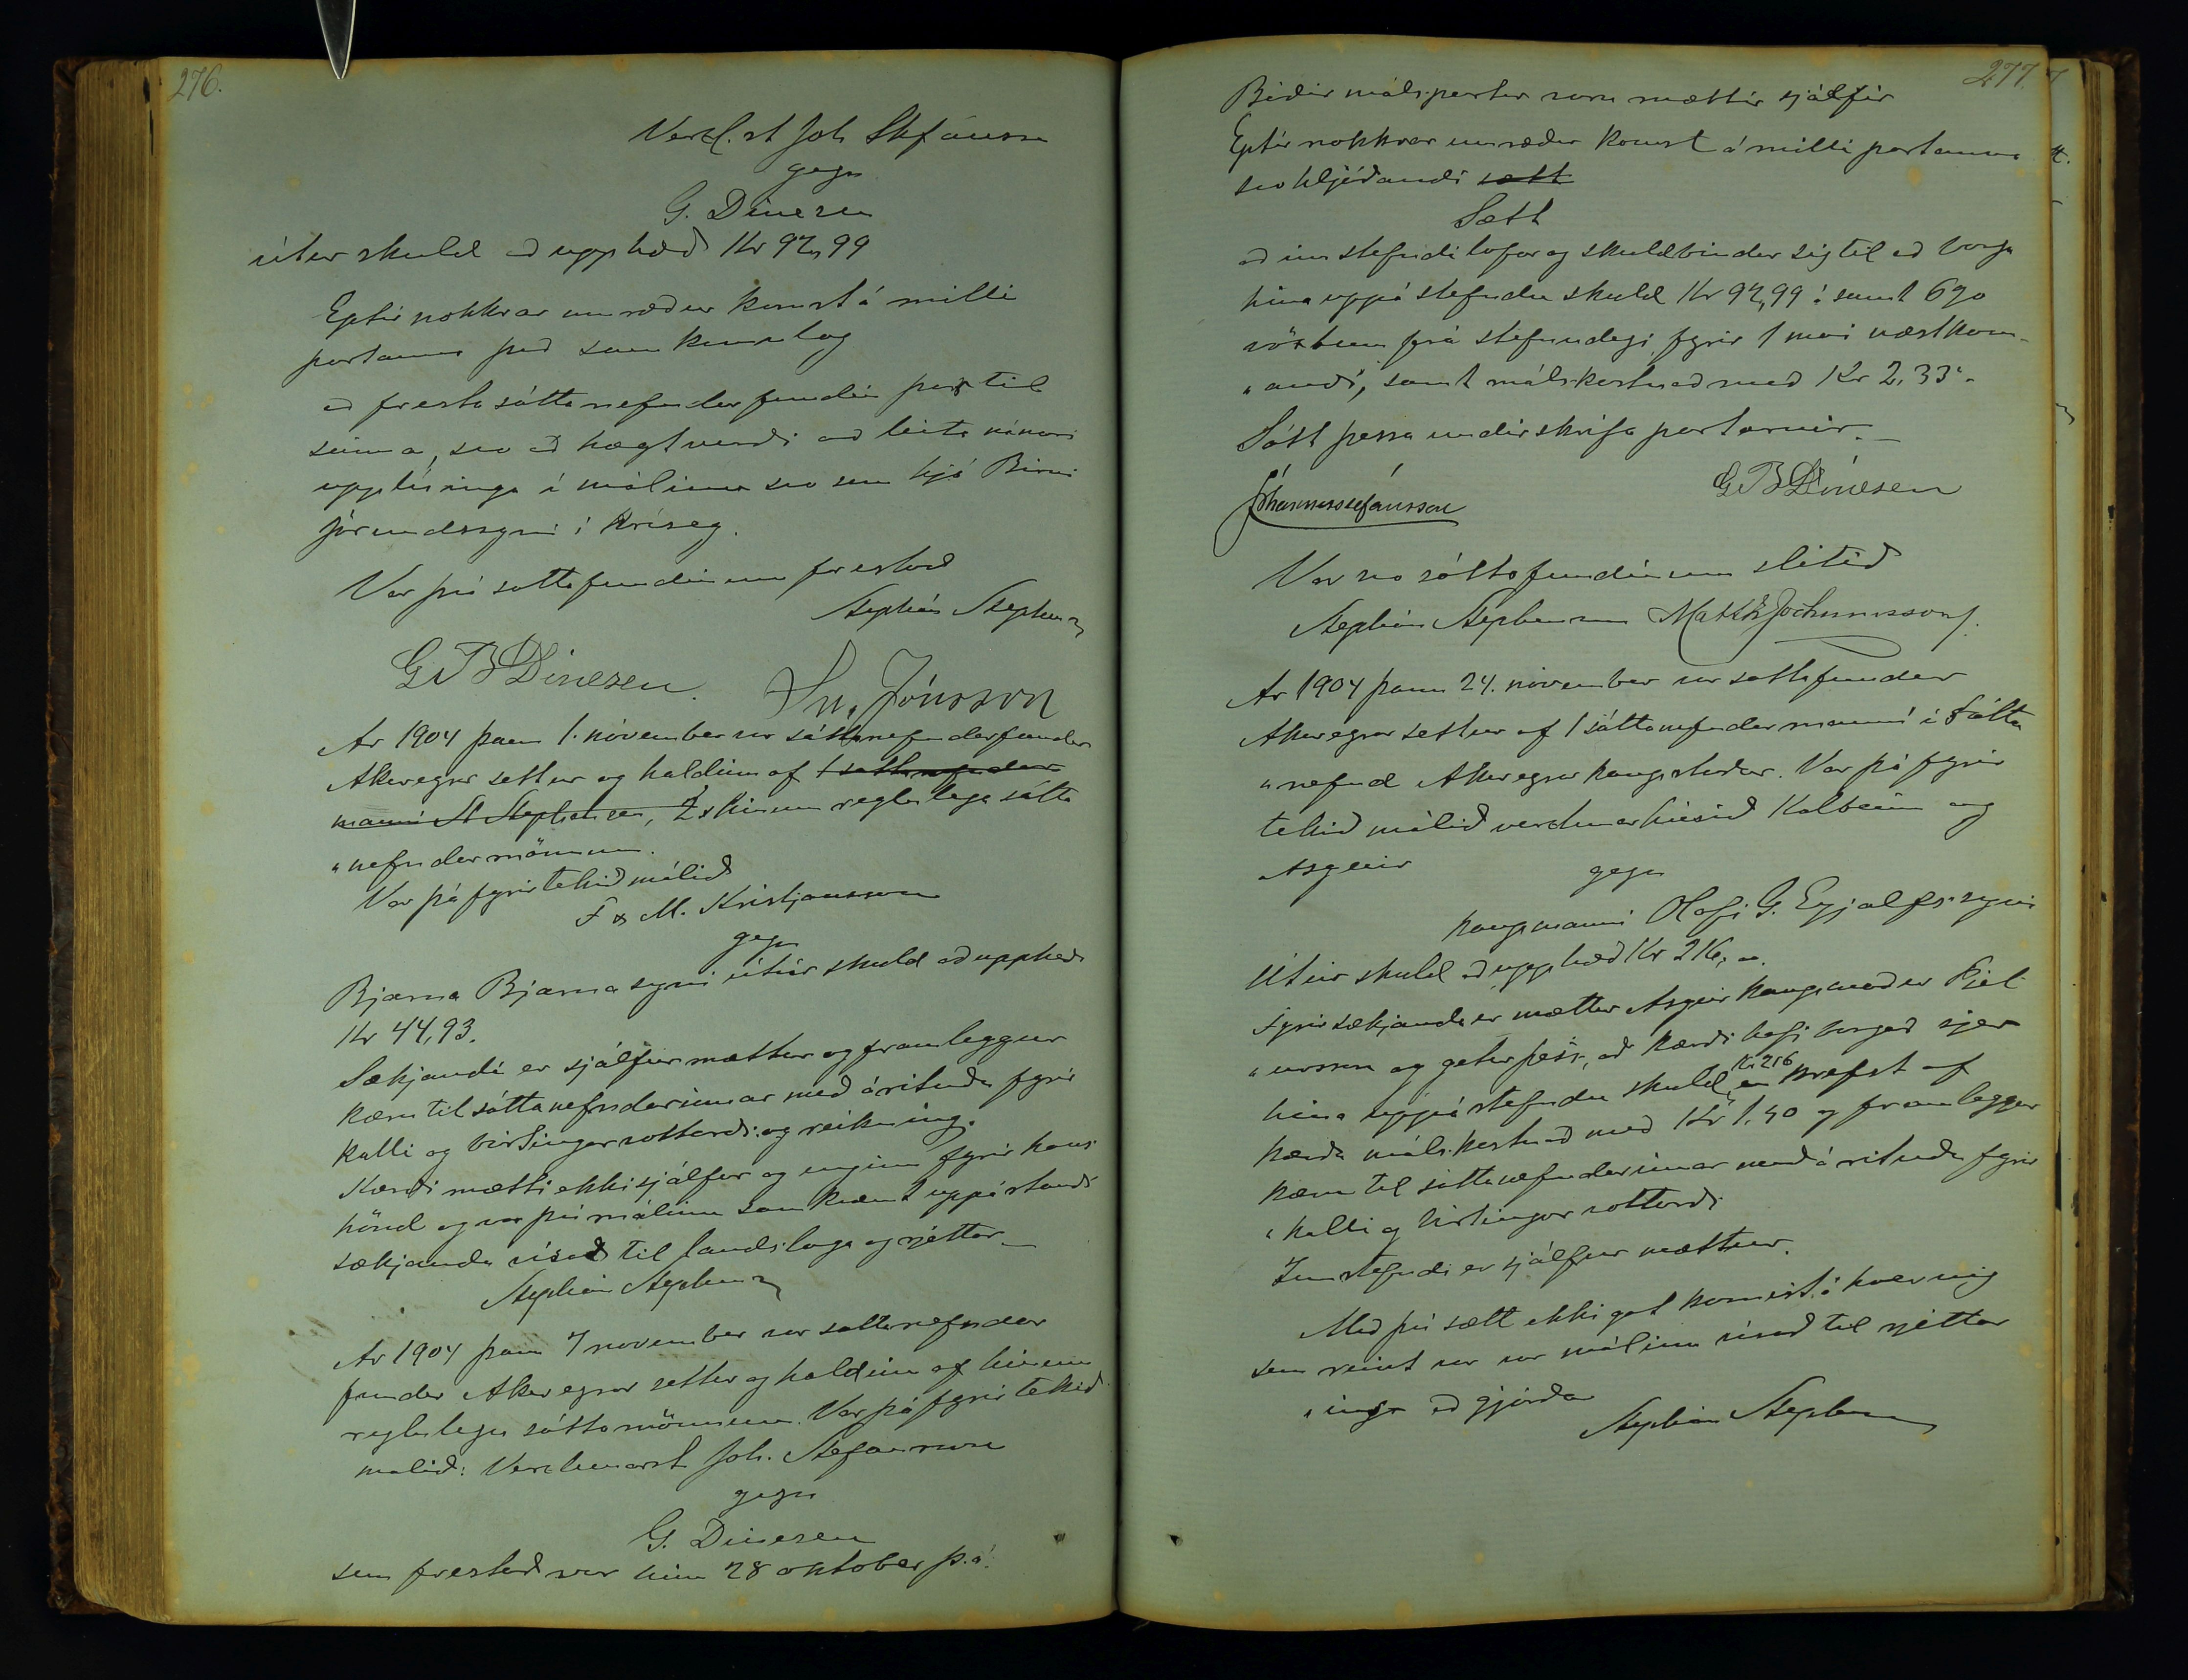 276.
Verzl.st Joh Stefánsson
gegn
G. Dinesen
út úr skuld að upphæð Kr 92,99
Eptir nokkrar umræður komst á milli
partanna það samkomulag
að fresta sáttanefndarfundi þar til
seinna, svo að hægt verði að leita nánari
upplýsinga í málinu svo sem hjá Birni
Jörundssyni í Hrísey.
Var því sáttafundinum frestað
Stephán Stephensen
G B Dinesen. Sn. Jónsson
Ár 1904 þann 1. nóvember var sáttanefndarfundur
Akureyrar settur og haldinn af 1 sáttanefndar
manni St Stephensen, 2 hinum reglulega sátta
"nefndarmönnum.
Var þá fyrirtekið málið
F & M. Kristjánsson
gegn
Bjarna Bjarnasyni útúr skuld að upphæð
Kr 44,93.
Sækjandi er sjálfur mættur og framleggur
kæru til sáttanefndarinnar með árituðu fyrir
kalli og birtingarvottorði og reikning.
Kærði mætti ekki sjálfur og enginn fyrir hans
hönd og var því málinu samkvæmt uppástandi
sækjanda vísað til landslaga og rjettar
Stephán Stephensen
Ár 1904 þann 7 november var sáttanefndar
fundur Akureyrar settur og haldinn af hinum
reglulegu sáttamönnum. Var þá fyrirtekið
málið: Verzlunarst Joh. Stefánsson
gegn
G. Dinesen
sem frestað var hinn 28 oktober þ.á.
277.
Báðir málspartar voru mættir sjálfir
Eptir nokkrar umræður komst á milli partanna
svo hljóðandi sætt
Sætt
að innstefndi lofar og skuldbindur sig til að borga
hina uppá stefndu skuld Kr 92,99 : samt 6%
vöxtum frá stefnudegi fyrir 1 mai næstkom-
"andi, samt málskostnað með Kr 2,33.
Sátt þessa undirskrifa partarnir.
Jóhannes Stefánsson G B Dinesen
Var svo sáttafundinum slitið
Stephán Stephensen Matth Jochumsson.
Ár 1904 þann 24. november var sáttafundur
Akureyrar settur af 1 sáttanefndarmanni í Sátta
"nefnd Akureyrarkaupstaðar. Var þá fyrir
tekið málið verzlunarhúsið Kolbeinn og
Asgeir
gegn
kaupmanni Olafi G. Eyjolfssyni
Útúr skuld að upphæð Kr 216,00.
Fyrir sækjanda er mættur Asgeir kaupmaður Pjet
"ursson og getur þess, að kærði hafi borgað sjer
hina uppástefndu skuld, Kr 216 en krefst af
kærða málskostnað með Kr 1.40 og framleggur
kæru til sáttanefndarinnar með árituðu fyrir
"kalli og birtingarvottorði
Innstefndi er sjálfur mættur.
Með því sætt ekki gat komist á hvernig
sem reint var var málinu vísað til rjettar
"ins að gjörðar
Stephán Stephensen